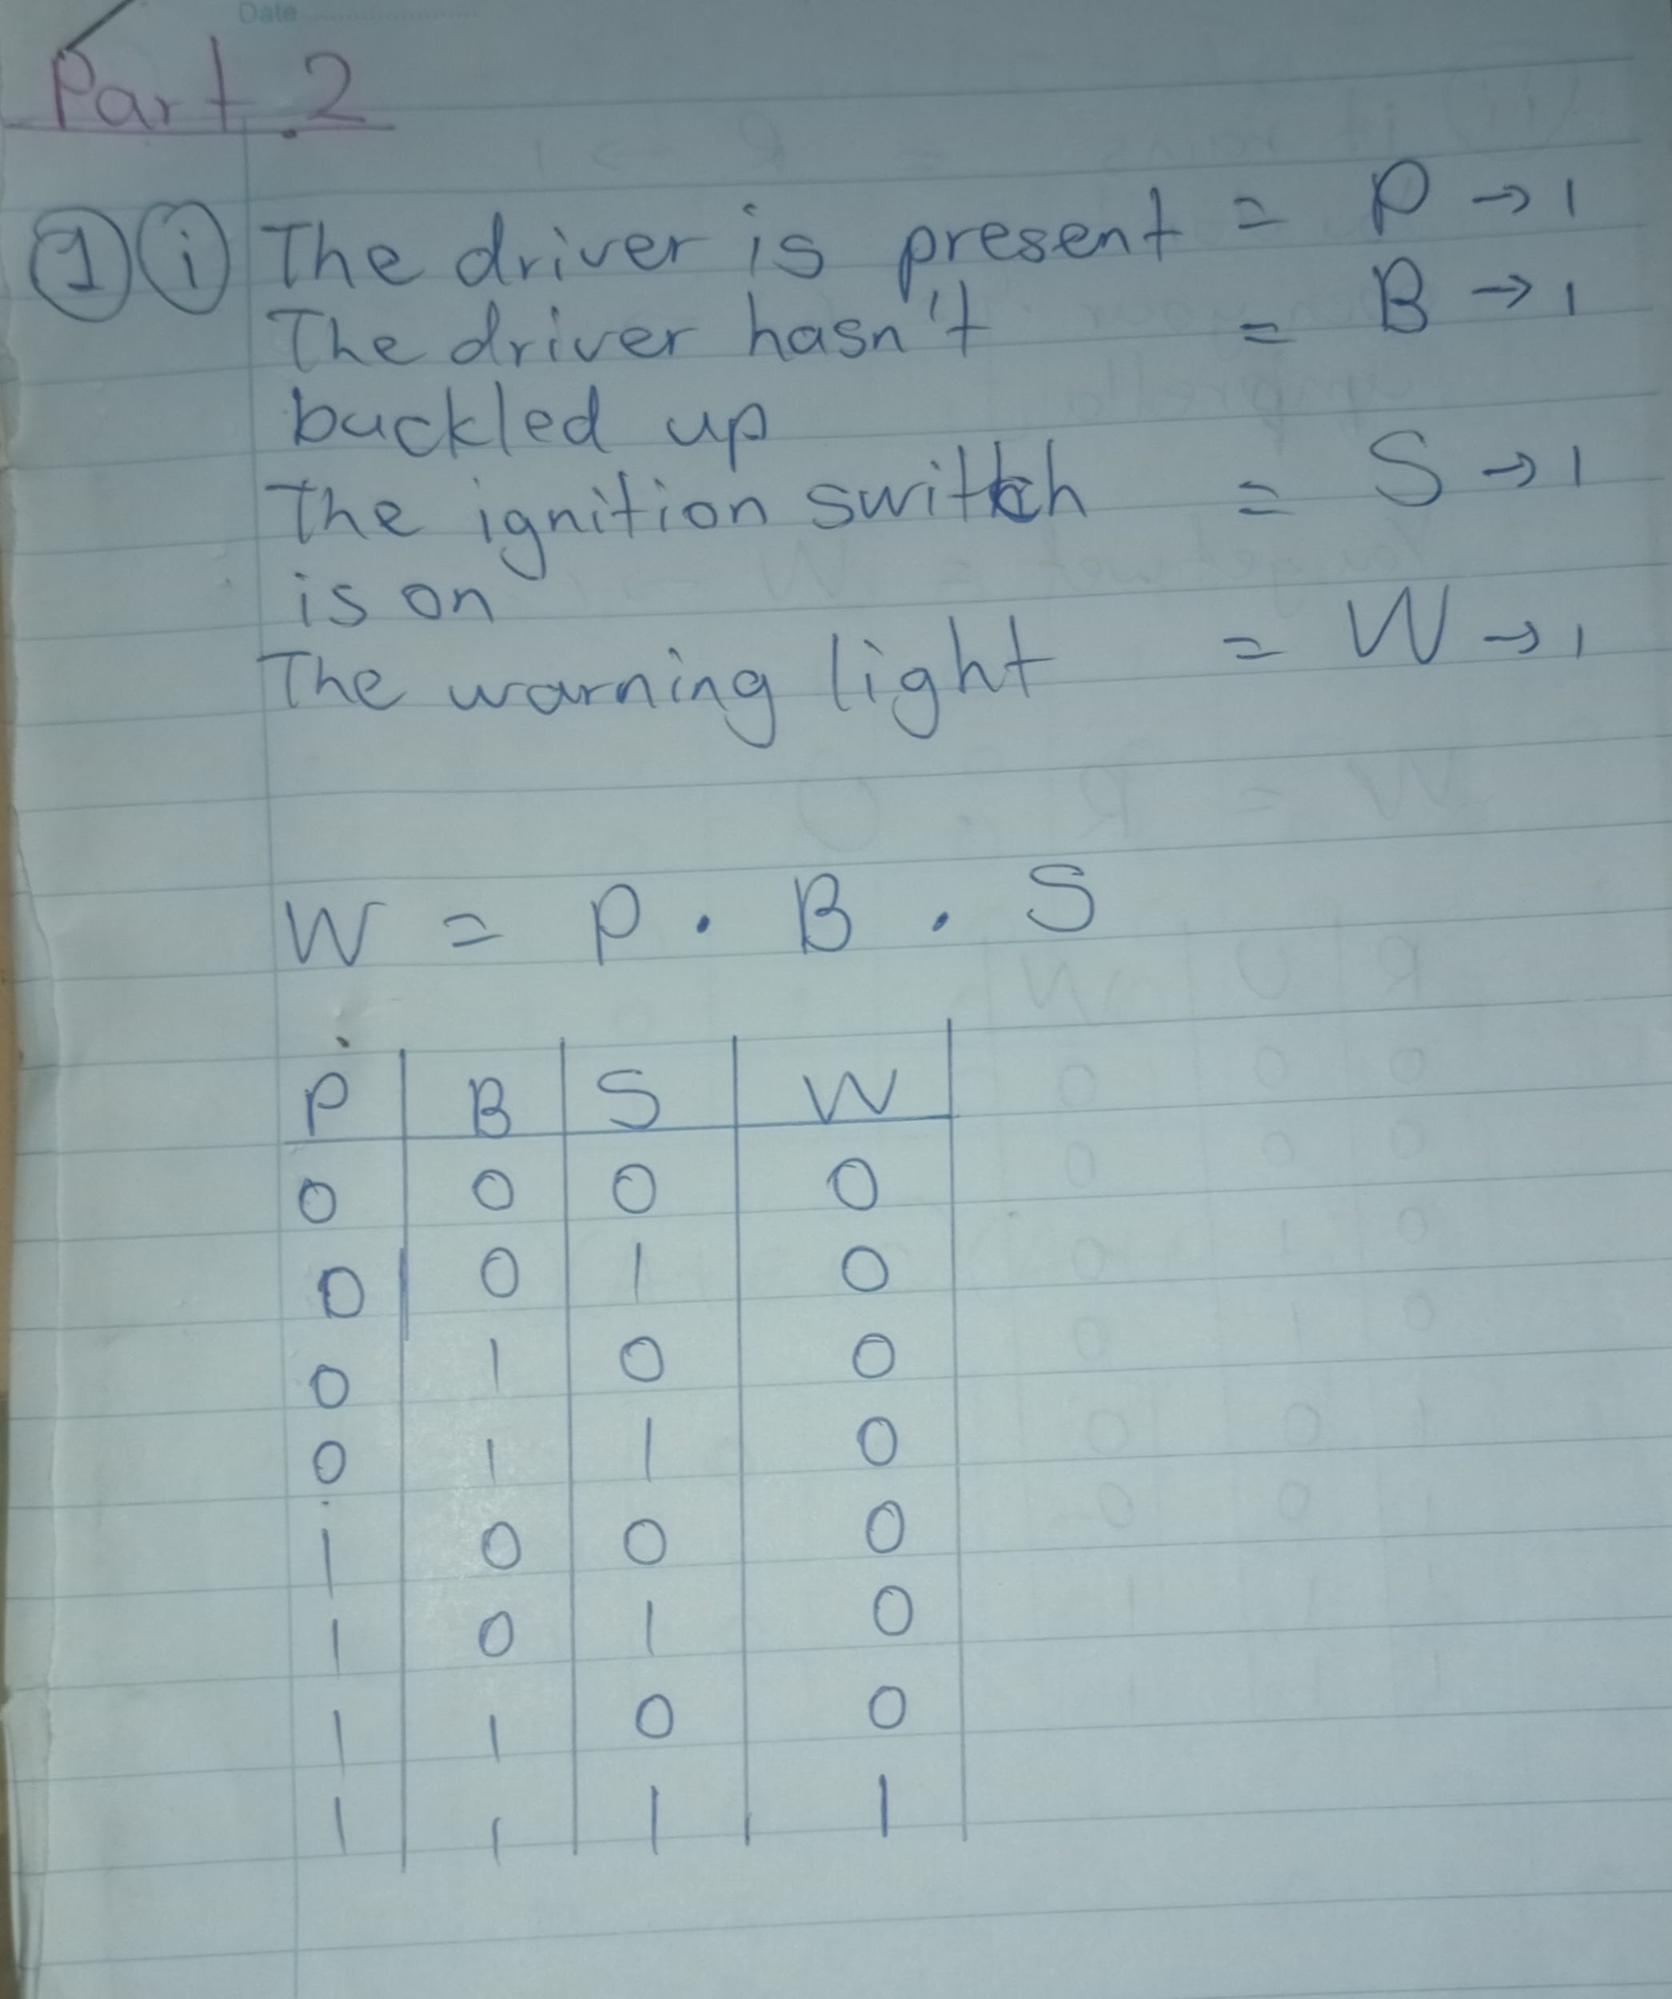 Date
Part 2
1 i The driver is present = P → 1
The driver hasn't = B → 1
buckled up
The ignition switch = S → 1
is on
The warning light = W → 1
W = P . B . S
P B S W
0 0 0 0
0 0 1 0
0 1 0 0
0 1 1 0
1 0 0 0
1 0 1 0
1 1 0 0
1 1 1 1